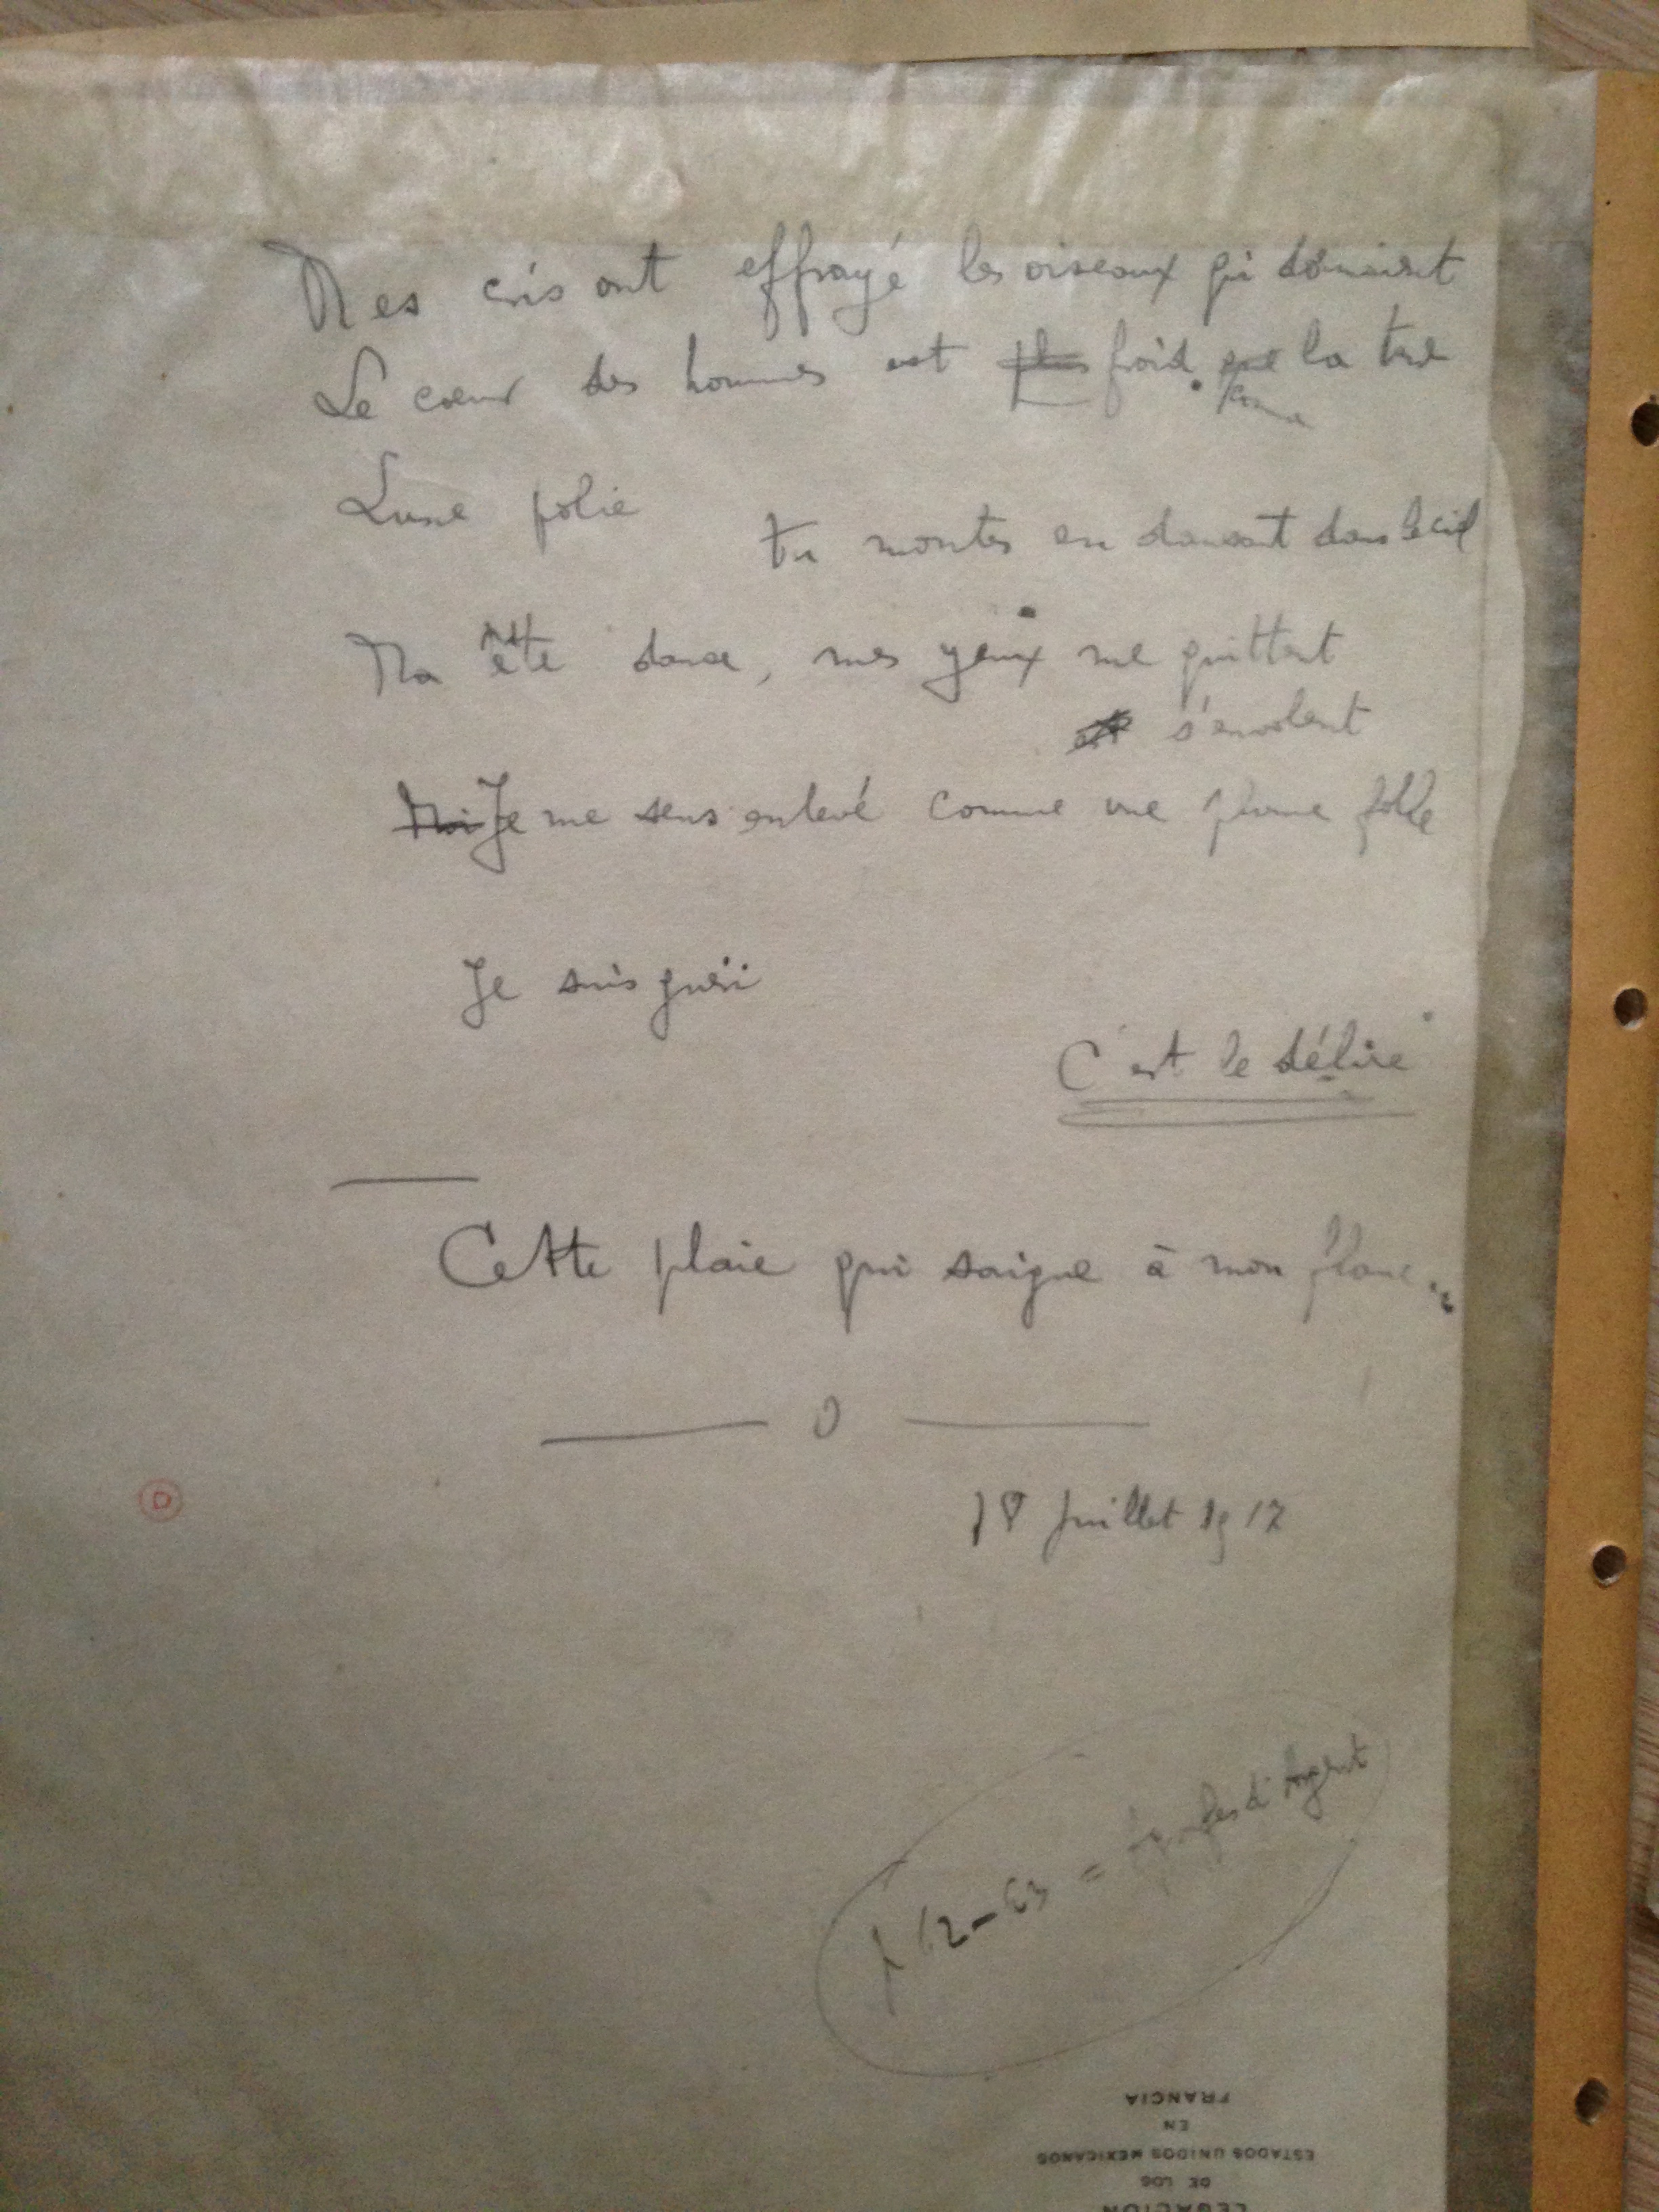 Mes cris ont effrayé les oiseaux qui dormaient
Le cœur des hommes est plus froid que la terre
comme
Lune folie
tu montes en dansant dans le ciel
Ma tête danse, mes yeux me quittent
et s'envolent
Moi Je me sens enlevé comme une plume folle
Je suis guéri
C'est le délire
Cette plaie qui saigne à mon flanc..
O
18 Juillet 1917
12-63 = d'Argent
D
LEGACION
DE LOS
ESTADOS UNIDOS MEXICANOS
EN
FRANCIA